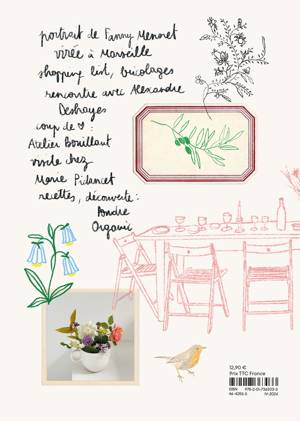 portrait de Fanny Monnet
virée à Marseille
shopping list, bricolages
rencontre avec Alexandre
Deshayes
coup de ♥ :
Atelier Bouillant
visite chez
Marie Pidancet
recettes, découverte :
Poudre
Organic
12,90 €
Prix TTC France
ISBN 978-2-01-736303-0
46-4255-5 IV-2024